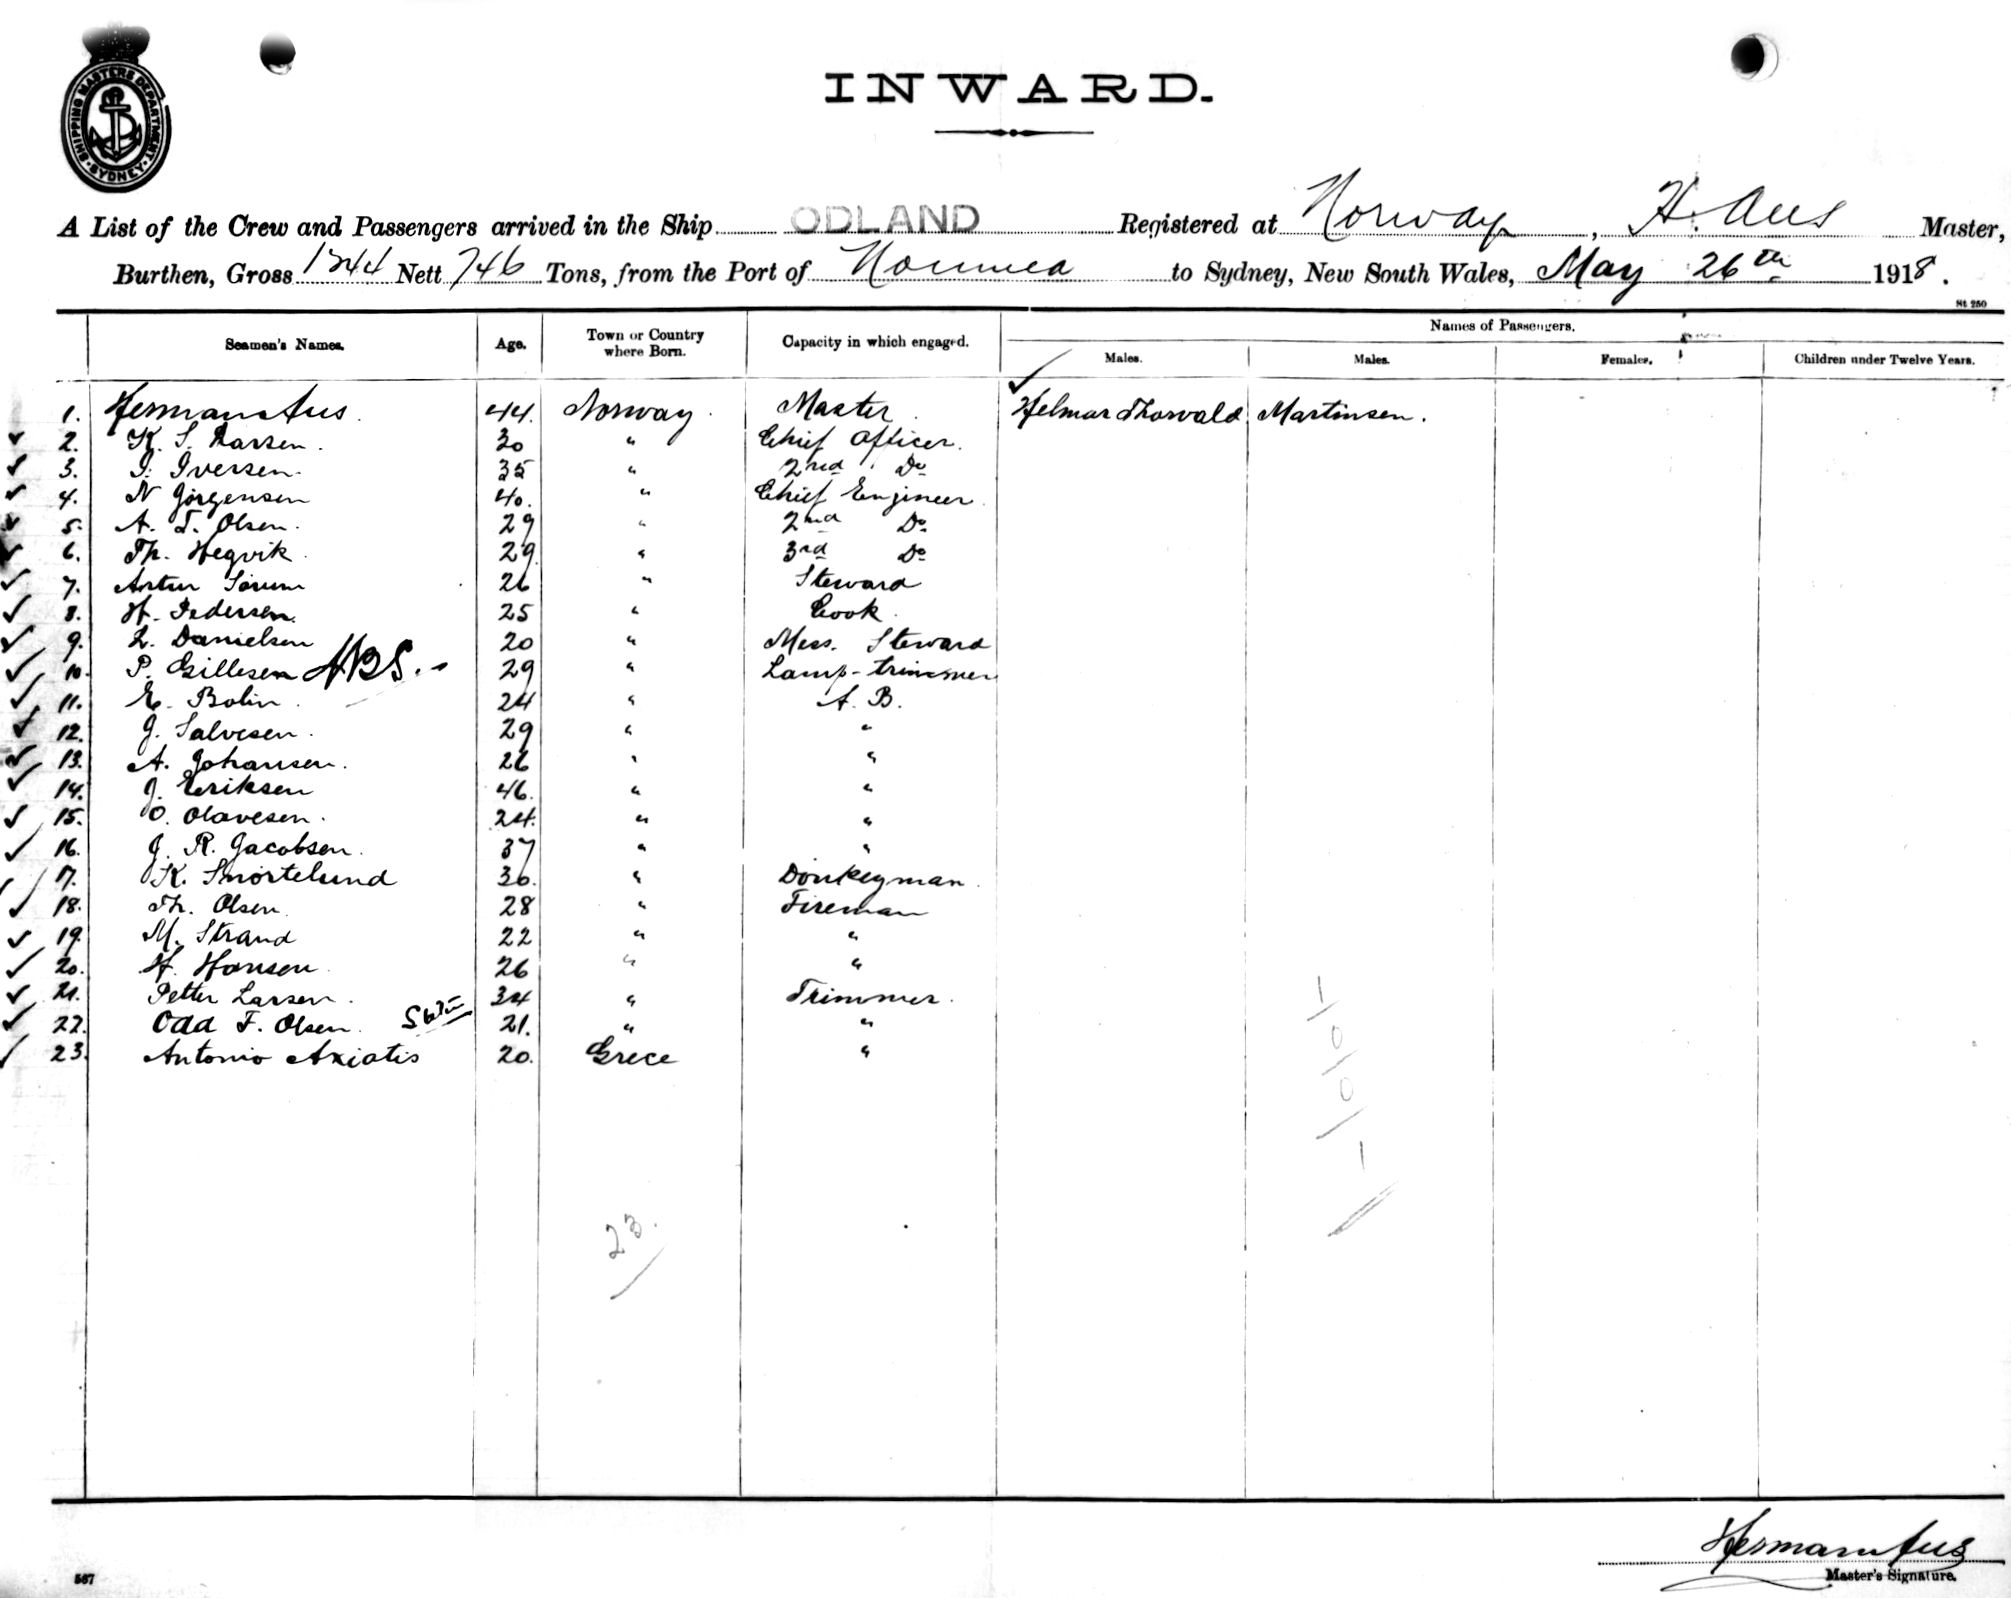 SHIPPING MASTERS DEPARTMENT
SYDNEY
INWARD.
A List of the Crew and Passengers arrived in the Ship ODLAND Registered at Norway, H. Aus Master,
Burthen, Gross 1244 Nett 746 Tons, from the Port of Noumea to Sydney, New South Wales, May 26th 1918.
St. 250
Seamen's Names. Age. Town or Country where Born. Capacity in which engaged. Names of Passengers.
Males. Males. Females. Children under Twelve Years.
1. Herman Aus. 44. Norway. Master. Helmar Thorvald Martinsen.
2. K. S. Larsen. 30 " Chief Officer.
3. I. Iversen. 35 " 2nd Do
4. N Jörgensen 40. " Chief Engineer.
5. A. T. Olsen. 29 " 2nd Do
6. Th. Hegvik. 29 " 3rd Do
7. Artur Sörum 26 " Steward
8. H. Pedersen. 25 " Cook.
9. L. Danielsen 20 " Mess. Steward
10. P. Gillesen ABS. 29 " Lamp-trimmer
11. E. Bolin. 24 " A. B.
12. J. Salvesen. 29 " "
13. A. Johansen. 26 " "
14. J. Eriksen 46. " "
15. O. Olavesen. 24. " "
16. J. R. Jacobsen. 37 " "
17. K. Smörtelund 30. " Donkeyman.
18. Th. Olsen. 28 " Fireman
19. M. Strand 22 " "
20. H. Hansen 26 " "
21. Petter Larsen. 34 " Trimmer.
22. Odd F. Olsen. 21. " "
23. Antonio Axiatis 20. Grece "
1
0
0
1
23.
Herman Aus
Master's Signature.
567